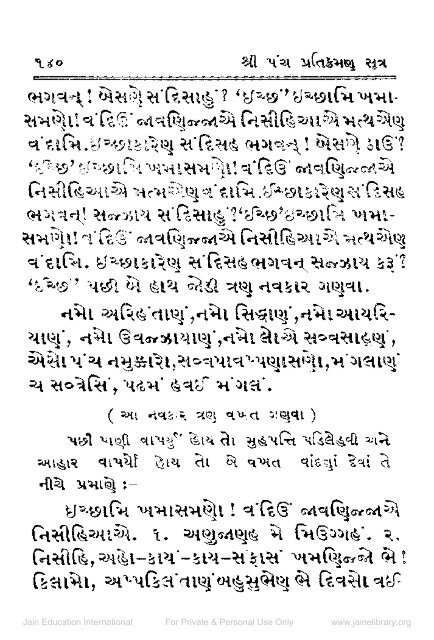 ૧૪૦ શ્રી પંચ પ્રતિક્રમણ સૂત્ર
ભગવન્ ! બેસણે સંદિસાહું ? ‘ઇચ્છં’ ઇચ્છામિ ખમા-
સમણો! વંદિઉં જાવણિજ્જાએ નિસીહિઆએ મત્થએણ
વંદામિ. ઇચ્છાકારેણ સંદિસહ ભગવન્ ! બેસણે ઠાઉં ?
‘ઇચ્છં’ ઇચ્છામિ ખમાસમણો! વંદિઉં જાવણિજ્જાએ
નિસીહિઆએ મત્મએણ વંદામિ. ઇચ્છાકારેણ સંદિસહ
ભગવન્! સજ્ઝાય સંદિસાહું ?‘ઇચ્છં’ ઇચ્છામિ ખમા-
સમણો! વંદિઉં જાવણિજ્જાએ નિસીહિઆએ મત્થએણ
વંદામિ. ઇચ્છાકારેણ સંદિસહ ભગવન્ સજ્ઝાય કરૂં ?
‘ઇચ્છં’ પછી બે હાથ જોડી ત્રણ નવકાર ગણવા.
નમો અરિહંતાણં, નમો સિદ્ધાણં, નમો આયરિ-
યાણં, નમો ઉવજ્ઝાયાણં, નમો લોએ સવ્વસાહૂણં,
એસો પંચ નમુક્કારો, સવ્વપાવપ્પણાસણો, મંગલાણં
ચ સવ્વેસિં, પઢમં હવઈ મંગલં.
( આ નવકાર ત્રણ વખત ગણવા )
પછી પાણી વાપર્યું હોય તો મુહપત્તિ પડિલેહવી અને
આહાર વાપર્યો હોય તો બે વખત વાંદણાં દેવાં તે
નીચે પ્રમાણે :–
ઇચ્છામિ ખમાસમણો ! વંદિઉં જાવણિજ્જાએ
નિસીહિઆએ. ૧. અણુજાણહ મે મિઉગ્ગહં. ૨.
નિસીહિ, અહો-કાયં-કાય-સંફાસં ખમણિજ્જો ભે!
કિલામો, અપ્પકિલંતાણં બહુસુભેણ ભે દિવસો વઈ
Jain Education International For Private & Personal Use Only www.jainelibrary.org